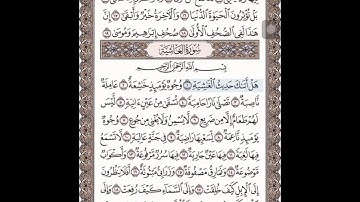 بَلْ تُؤْثِرُونَ ٱلْحَيَوٰةَ ٱلدُّنْيَا ١٦ وَٱلْءَاخِرَةُ خَيْرٌ وَأَبْقَىٰٓ ١٧ إِنَّ
هَٰذَا لَفِى ٱلصُّحُفِ ٱلْأُولَىٰ ١٨ صُحُفِ إِبْرَٰهِيمَ وَمُوسَىٰ ١٩
سُورَةُ الغَاشِيَةِ
بِسْمِ ٱللَّهِ ٱلرَّحْمَٰنِ ٱلرَّحِيمِ
هَلْ أَتَىٰكَ حَدِيثُ ٱلْغَٰشِيَةِ ١ وُجُوهٌ يَوْمَئِذٍ خَٰشِعَةٌ ٢ عَامِلَةٌ
نَّاصِبَةٌ ٣ تَصْلَىٰ نَارًا حَامِيَةً ٤ تُسْقَىٰ مِنْ عَيْنٍ ءَانِيَةٍ ٥ لَّيْسَ
لَهُمْ طَعَامٌ إِلَّا مِن ضَرِيعٍ ٦ لَّا يُسْمِنُ وَلَا يُغْنِى مِن جُوعٍ ٧ وُجُوهٌ
يَوْمَئِذٍ نَّاعِمَةٌ ٨ لِّسَعْيِهَا رَاضِيَةٌ ٩ فِى جَنَّةٍ عَالِيَةٍ ١٠ لَّا تَسْمَعُ
فِيهَا لَٰغِيَةً ١١ فِيهَا عَيْنٌ جَارِيَةٌ ١٢ فِيهَا سُرُرٌ مَّرْفُوعَةٌ ١٣ وَأَكْوَابٌ
مَّوْضُوعَةٌ ١٤ وَنَمَارِقُ مَصْفُوفَةٌ ١٥ وَزَرَابِىُّ مَبْثُوثَةٌ ١٦ أَفَلَا يَنظُرُونَ
إِلَى ٱلْإِبِلِ كَيْفَ خُلِقَتْ ١٧ وَإِلَى ٱلسَّمَآءِ كَيْفَ رُفِعَتْ ١٨ وَإِلَى